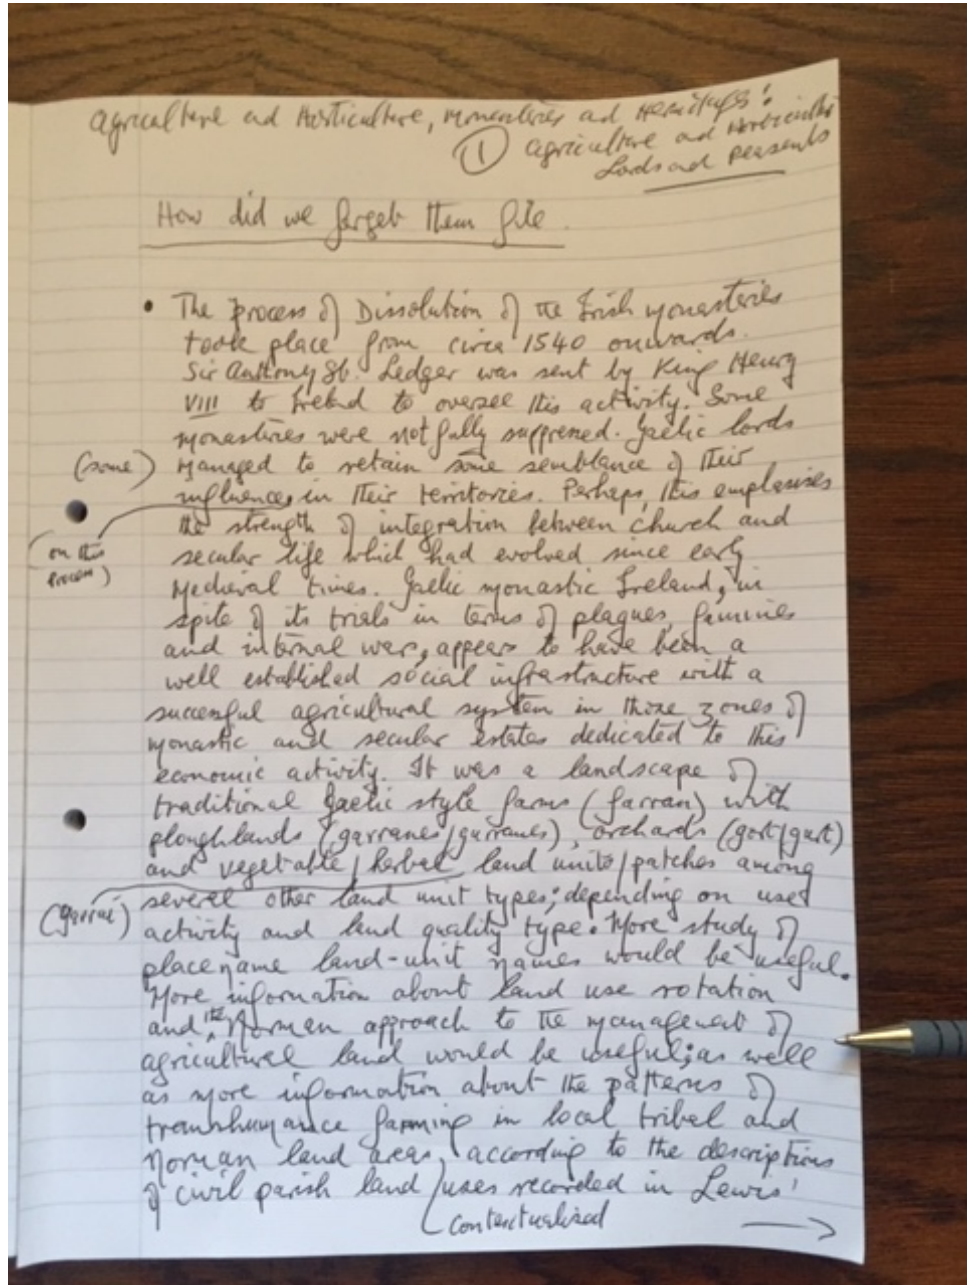 Agriculture and Horticulture, monasteries and Hermitages:
① Agriculture and Horticulture
Lords and peasants
How did we forget them file.
• The process of Dissolution of the Irish monasteries
took place from circa 1540 onwards.
Sir Anthony St. Ledger was sent by King Henry
VIII to Ireland to oversee this activity. Some
monasteries were not fully suppressed. Gaelic lords
(some) managed to retain some semblance of their
influences in their territories. Perhaps, this emphasises
the strength of integration between church and
(on this process)
secular life which had evolved since early
Medieval times. Gaelic monastic Ireland, in
spite of its trials in terms of plagues, famines
and internal war, appears to have been a
well established social infrastructure with a
successful agricultural system in those zones of
monastic and secular estates dedicated to this
economic activity. It was a landscape of
traditional Gaelic style farms (farran) with
ploughlands (garranes/gurranes), orchards (gort/gurt)
and vegetable/herbal land units/patches among
(garraí) several other land unit types; depending on used
activity and land quality type. More study of
placename land-unit names would be useful.
More information about land use rotation
and the Norman approach to the management of
agricultural land would be useful; as well
as more information about the patterns of
transhumance farming in local tribal and
Norman land areas, according to the descriptions
of civil parish land uses recorded in Lewis'
contextualised →